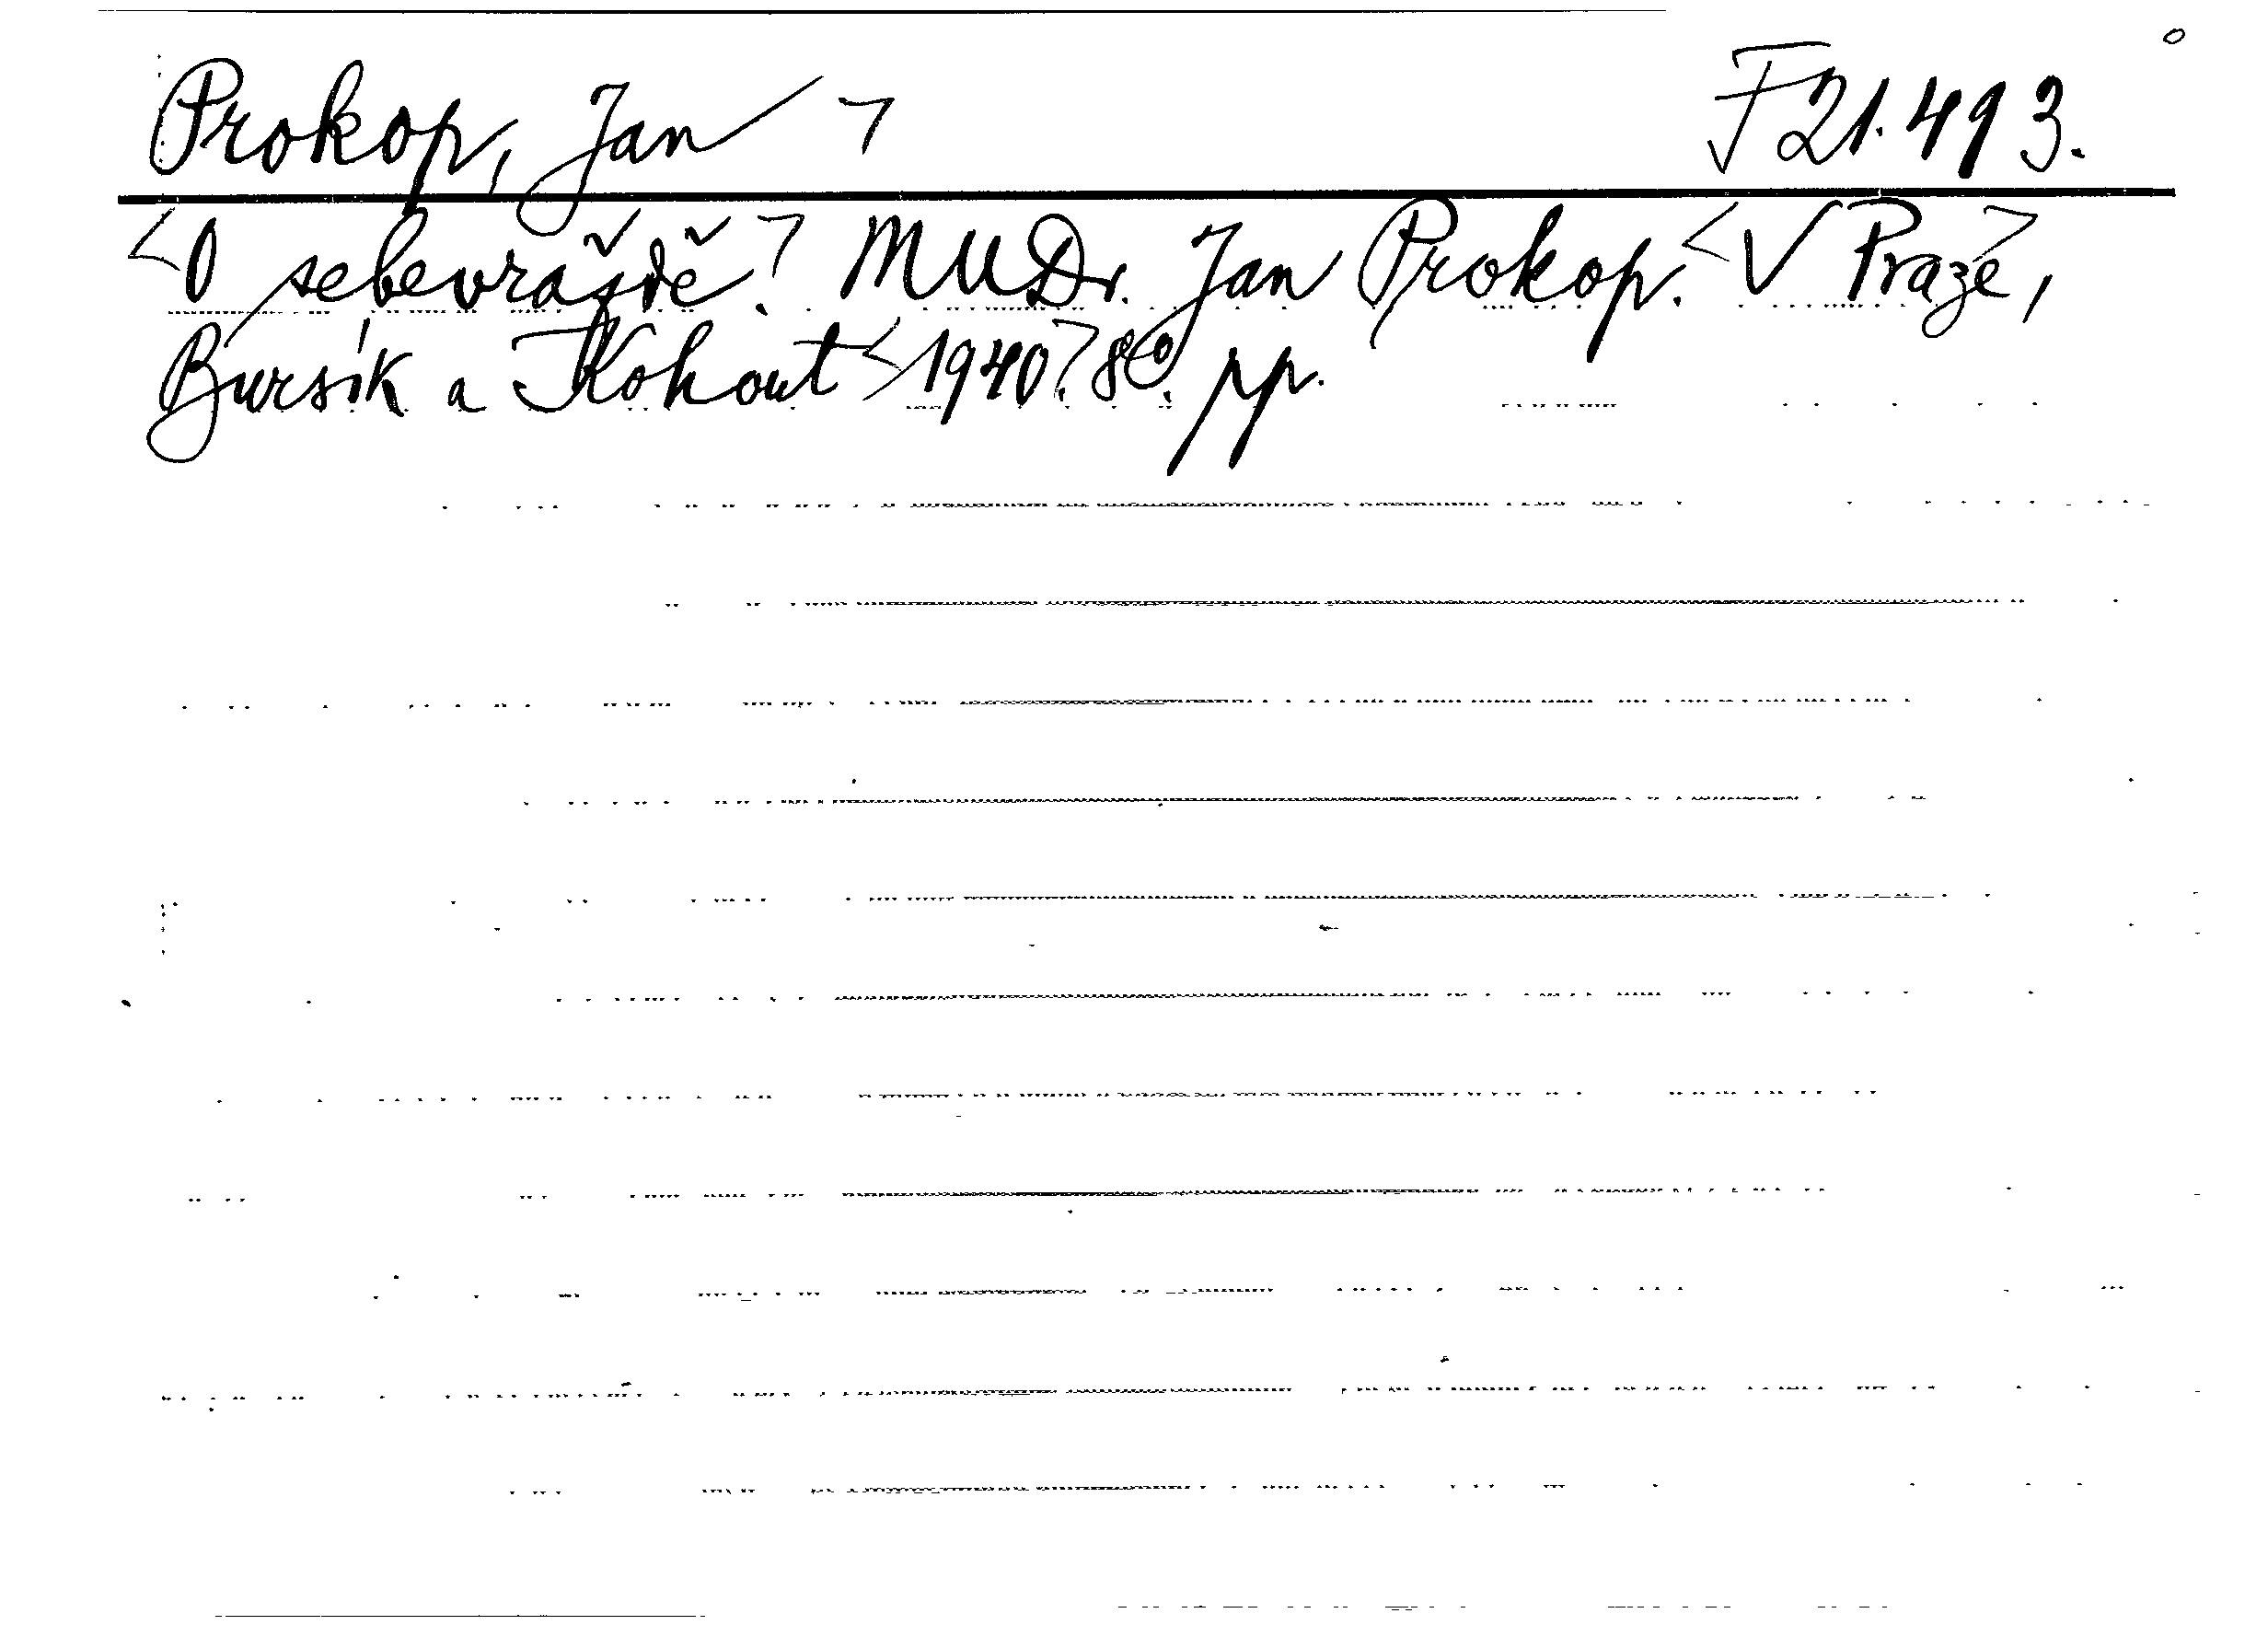 Prokop, Jan > F 21.493.
<O sebevraždě.> MUDr. Jan Prokop. <V Praze>,
Bursík a Kohout <1940>. 8°. pp.